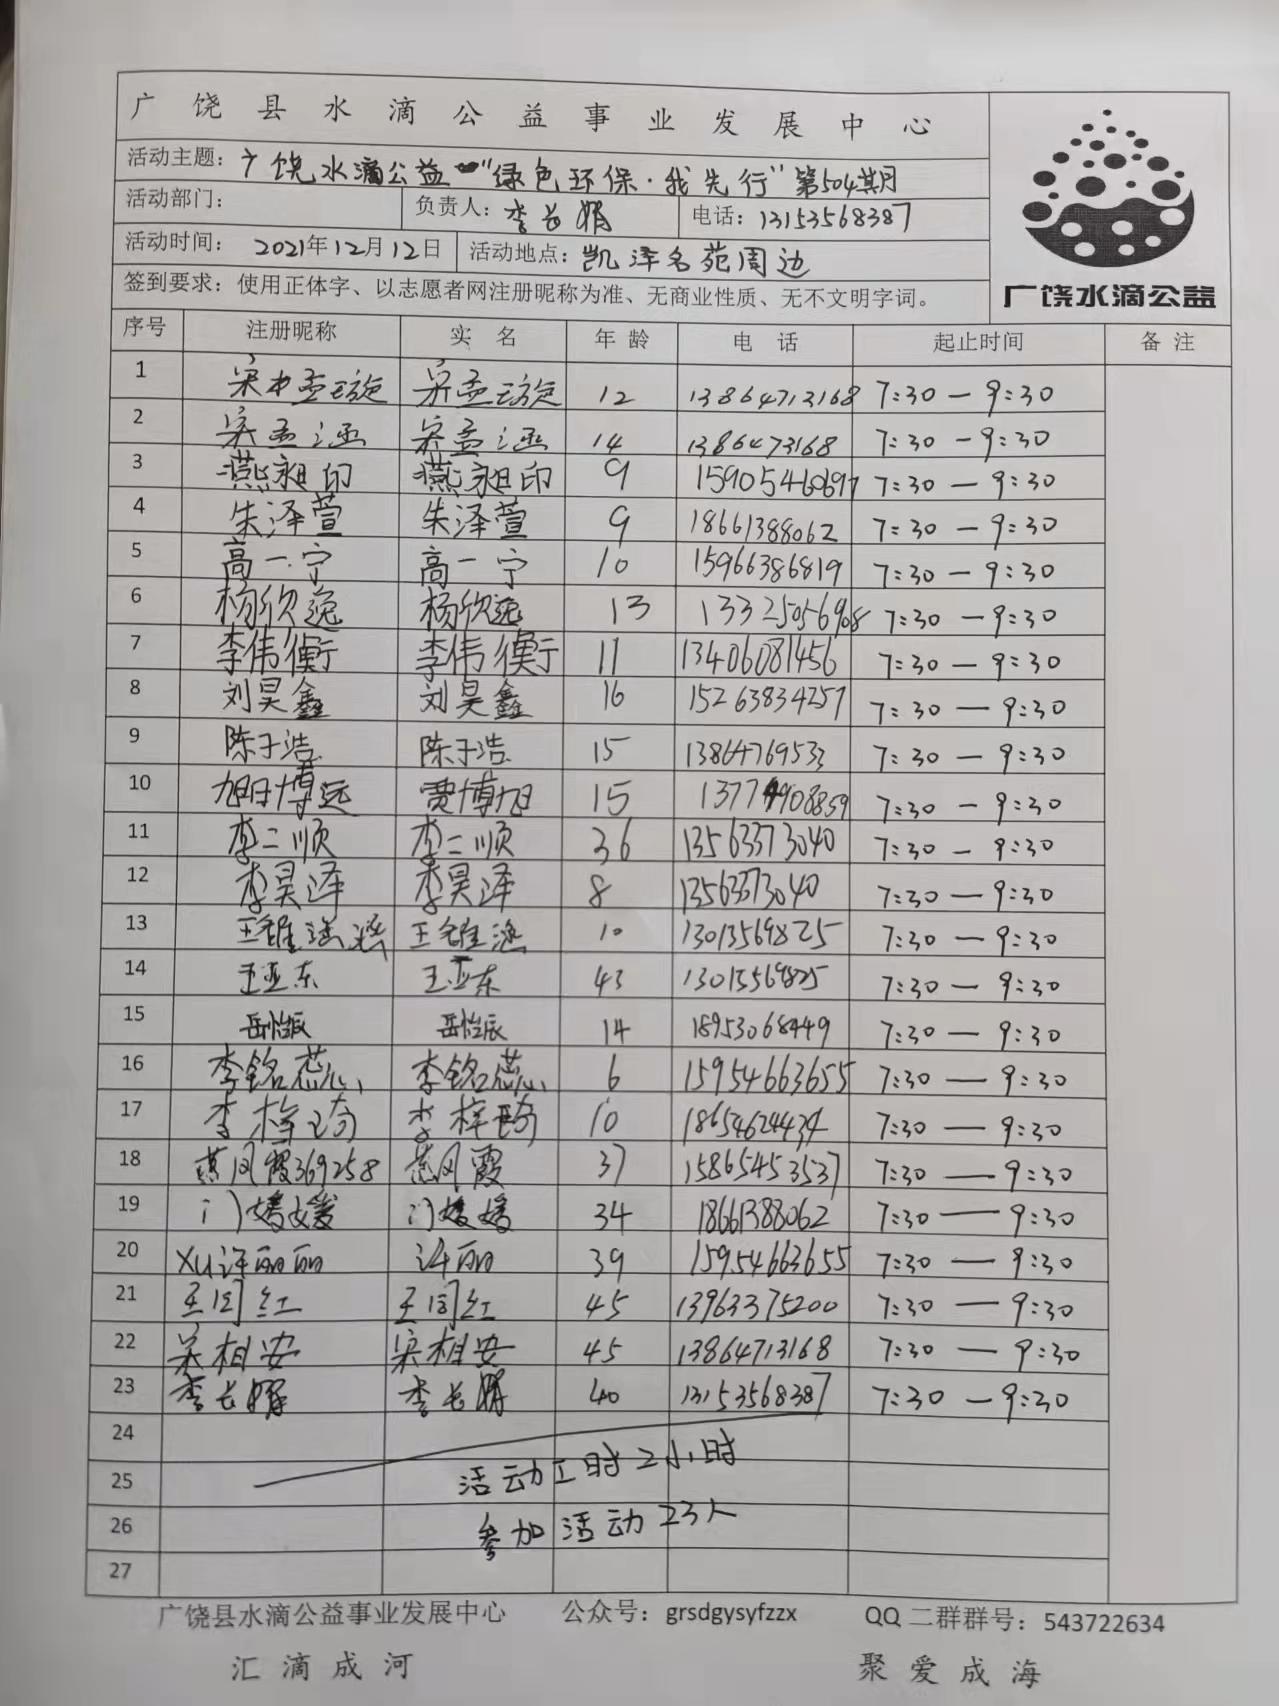 广饶县水滴公益事业发展中心
活动主题：广饶水滴公益—"绿色环保·我先行"第504期
活动部门： 负责人：李长娟 电话：13153568387
活动时间：2021年12月12日 活动地点：凯泽名苑周边
签到要求：使用正体字、以志愿者网注册昵称为准、无商业性质、无不文明字词。
广饶水滴公益
序号 注册昵称 实名 年龄 电话 起止时间 备注
1 宋孟璇 12 13864713168 7:30—9:30
2 宋孟涵 宋孟涵 14 1386473168 7:30—9:30
3 燕昶印 燕昶印 9 15905460697 7:30—9:30
4 朱泽萱 朱泽萱 9 18661388062 7:30—9:30
5 高一宁 高一宁 10 15966386819 7:30—9:30
6 杨欣逸 杨欣逸 13 13325056908 7:30—9:30
7 李伟衡 李伟衡 11 13406081456 7:30—9:30
8 刘昊鑫 刘昊鑫 16 15263834257 7:30—9:30
9 陈于浩 陈于浩 15 13864769533 7:30—9:30
10 旭日博远 贾博旭 15 7:30—9:30
11 李二顺 李二顺 36 13563373040 7:30—9:30
12 李昊泽 李昊泽 8 13563373040 7:30—9:30
13 王维涵 10 13013569825 7:30—9:30
14 王亚东 王亚东 43 13013569825 7:30—9:30
15 岳怡辰 岳怡辰 14 18953068449 7:30—9:30
16 李铭蕊 李铭蕊 6 15954663655 7:30—9:30
17 李梓琦 李梓琦 10 18654624434 7:30—9:30
18 燕风霞369258 燕风霞 37 15865453537 7:30—9:30
19 门媛媛 门媛媛 34 18661388062 7:30—9:30
20 xu许丽丽 许丽 39 15954663655 7:30—9:30
21 王闫红 王闫红 45 13963375200 7:30—9:30
22 宋相安 宋相安 45 13864713168 7:30—9:30
23 李长娟 李长娟 40 13153568387 7:30—9:30
24
25 活动工时2小时
26 参加活动23人
27
广饶县水滴公益事业发展中心 公众号：grsdgysyfzzx QQ二群群号：543722634
汇滴成河 聚爱成海